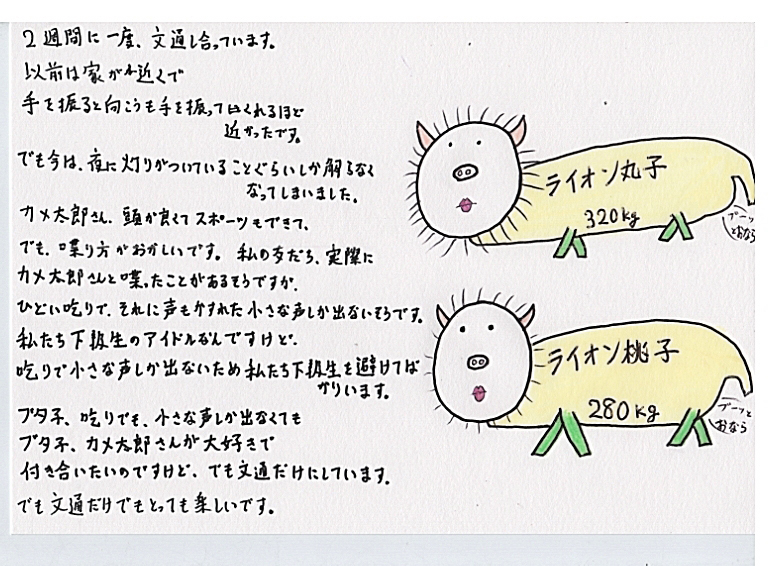 2週間に一度、文通し合っています。
以前は家が近くで
手を振ると向こうも手を振ってくれるほど
近かったです。
でも今は、夜に灯りがついていることぐらいしか解らなく
なってしまいました。
カメ太郎さん、頭が良くてスポーツもできて、
でも、喋り方がおかしいです。 私の友だち、実際に
カメ太郎さんと喋ったことがあるそうですが、
ひどい吃りで、それに声もかすれた小さな声しか出ないそうです。
私たち下級生のアイドルなんですけど、
吃りで小さな声しか出ないため私たち下級生を避けてば
かりいます。
ブタ子、吃りでも、小さな声しか出なくても
ブタ子、カメ太郎さんが大好きで
付き合いたいのですけど、でも文通だけにしています。
でも文通だけでもとっても楽しいです。
ライオン丸子
320kg
プーッ
とおなら
ライオン桃子
280kg
プーッと
おなら